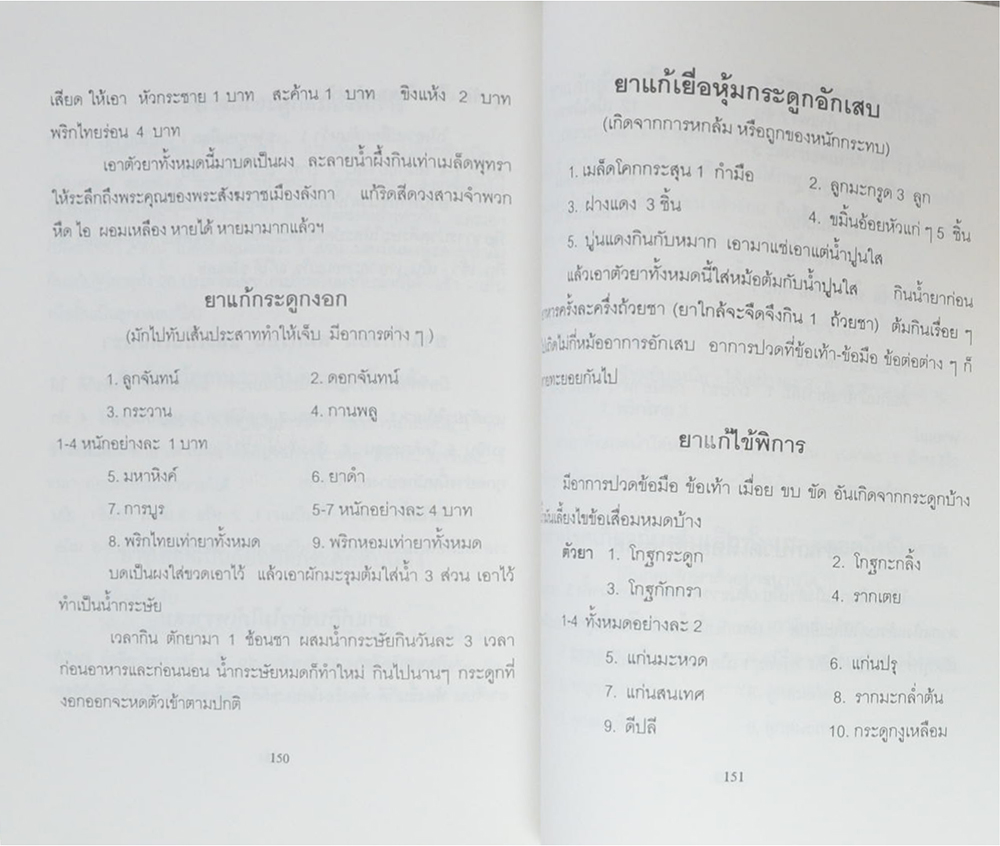 เสียด ให้เอา หัวกระชาย 1 บาท สะค้าน 1 บาท ขิงแห้ง 2 บาท
พริกไทยร่อน 4 บาท
เอาตัวยาทั้งหมดนี้มาบดเป็นผง ละลายน้ำผึ้งกินเท่าเมล็ดพุทรา
ให้ระลึกถึงพระคุณของพระสังฆราชเมืองลังกา แก้ริดสีดวงสามจำพวก
หืด ไอ ผอมเหลือง หายได้ หายมามากแล้วฯ
ยาแก้กระดูกงอก
(มักไปทับเส้นประสาททำให้เจ็บ มีอาการต่าง ๆ )
1. ลูกจันทน์ 2. ดอกจันทน์
3. กระวาน 4. กานพลู
1-4 หนักอย่างละ 1 บาท
5. มหาหิงค์ 6. ยาดำ
7. การบูร 5-7 หนักอย่างละ 4 บาท
8. พริกไทยเท่ายาทั้งหมด 9. พริกหอมเท่ายาทั้งหมด
บดเป็นผงใส่ขวดเอาไว้ แล้วเอาผักมะรุมต้มใส่น้ำ 3 ส่วน เอาไว้
ทำเป็นน้ำกระษัย
เวลากิน ตักยามา 1 ช้อนชา ผสมน้ำกระษัยกินวันละ 3 เวลา
ก่อนอาหารและก่อนนอน น้ำกระษัยหมดก็ทำใหม่ กินไปนานๆ กระดูกที่
งอกออกจะหดตัวเข้าตามปกติ
150
ยาแก้เยื่อหุ้มกระดูกอักเสบ
(เกิดจากการหกล้ม หรือถูกของหนักกระทบ)
1. เมล็ดโคกกระสุน 1 กำมือ 2. ลูกมะกรูด 3 ลูก
3. ฝางแดง 3 ชิ้น 4. ขมิ้นอ้อยหัวแก่ ๆ 5 ชิ้น
5. ปูนแดงกินกับหมาก เอามาแช่เอาแต่น้ำปูนใส
แล้วเอาตัวยาทั้งหมดนี้ใส่หม้อต้มกับน้ำปูนใส กินน้ำยาก่อน
อาหารครั้งละครึ่งถ้วยชา (ยาใกล้จะจืดจึงกิน 1 ถ้วยชา) ต้มกินเรื่อย ๆ
ไปเกิดไม่กี่หม้ออาการอักเสบ อาการปวดที่ข้อเท้า-ข้อมือ ข้อต่อต่าง ๆ ก็
ทะยอยกันไป
ยาแก้ไข้พิการ
มีอาการปวดข้อมือ ข้อเท้า เมื่อย ขบ ขัด อันเกิดจากกระดูกบ้าง
น้ำมันเลี้ยงไขข้อเสื่อมหมดบ้าง
ตัวยา 1. โกฐกระดูก 2. โกฐกะกลิ้ง
3. โกฐกักกรา 4. รากเตย
1-4 ทั้งหมดอย่างละ 2
5. แก่นมะหวด 6. แก่นปรุ
7. แก่นสนเทศ 8. รากมะกล่ำต้น
9. ดีปลี 10. กระดูกงูเหลือม
151